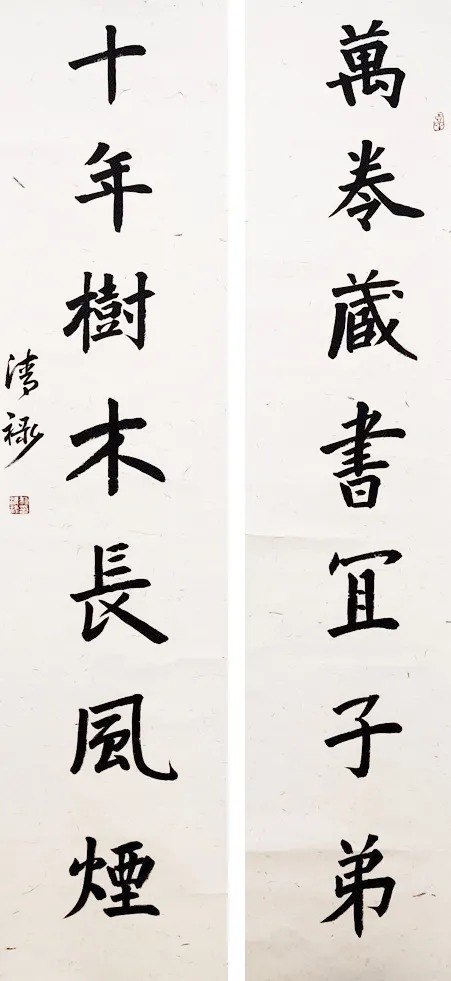 萬卷藏書宜子弟
十年樹木長風煙
清祿